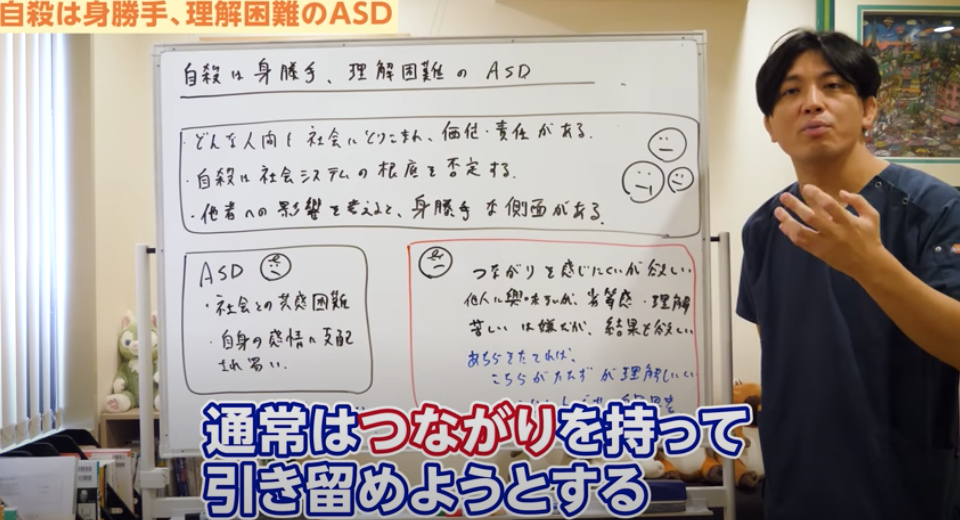 自殺は身勝手、理解困難のASD
自殺は身勝手、理解困難のASD
・どんな人間も社会にとりこまれ、価値・責任がある。
・自殺は社会システムの根底を否定する。
・他者への影響を考えると、身勝手な側面がある。
ASD
・社会との共感困難
・自身の感情に支配
され易い。
つながりを感じにくいが欲しい
他人に興味ないが、劣等感・理解
苦しいは嫌だが、結果も欲しい
あちらをたてれば、
こちらがたたずが理解しにくい
通常はつながりを持って
引き留めようとする